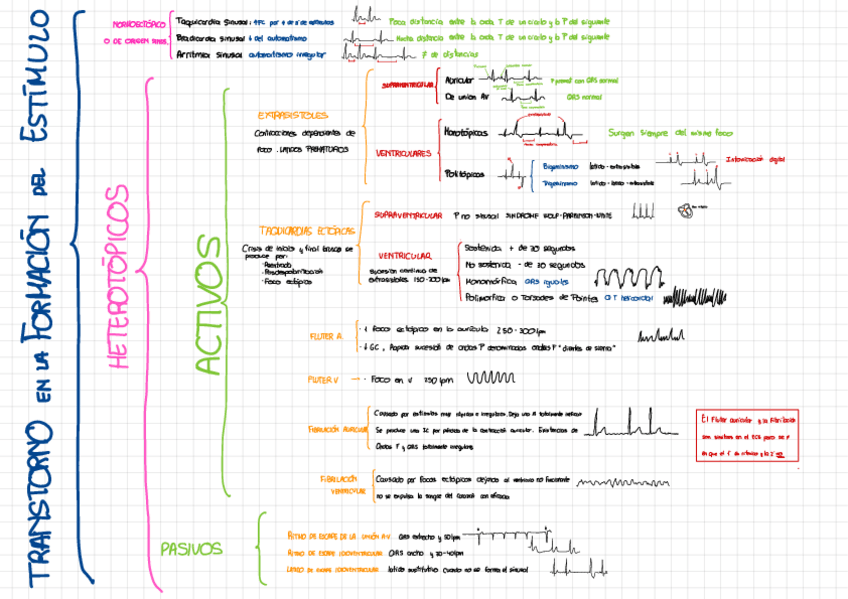 TRANSTORNO EN LA FORMACIÓN DEL ESTÍMULO
NOMOTÓPICO
O DE ORIGEN SINUS.
Taquicardia Sinusal: ↑FC por + de de estímulos
Poca distancia entre la onda T de un ciclo y la P del siguiente
Bradicardia sinusal ↓ del automatismo
Mucha distancia entre la onda T de un ciclo y la P del siguiente
Arritmia sinusal automatismo irregular
≠ de distancias
HETEROTÓPICOS
ACTIVOS
EXTRASÍSTOLES
Contracciones dependientes de
foco. LATIDOS PREMATUROS
SUPRAVENTRICULAR
Auricular
P normal con QRS normal
De unión AV
QRS normal
VENTRICULARES
Monotópicas
Surgen siempre del mismo foco
Politópicas
Bigeminismo latido - extrasístole
Intoxicación digital
Trigeminismo latido - latido - extrasístole
TAQUICARDIAS ECTÓPICAS
Crisis de inicio y final brusco se
produce por:
· Reentrada
· Posdespolarización
· Foco ectópico
SUPRAVENTRICULAR P no sinusal SÍNDROME WOLF-PARKINSON-WHITE
VENTRICULAR
sucesión continua de
extrasístoles 150-200 lpm
Sostenida + de 30 segundos
No sostenida - de 30 segundos
Monomórfica QRS iguales
Polimorfica o Torsades de Pointes QT
FLUTER A.
· 1 foco ectópico en la aurícula 250-300 lpm
· ↓GC, Rápida sucesión de ondas P denominadas ondas F "dientes de sierra"
FLUTER V → · Foco en V 250 lpm
FIBRILACIÓN AURICULAR
Causado por estímulos muy rápidos e irregulares. Deja una A totalmente
Se produce una IC por pérdida de la contracción auricular. Existencias de
Ondas F y QRS totalmente irregulares
El Fluter auricular y la Fibrilación
son similares en el ECG pero se ≠
en que el F es rítmico y la F NO
FIBRILACIÓN
VENTRICULAR
Causado por focos ectópicos dejando al ventrículo no funcionante
no se expulsa la sangre del corazón con eficacia
PASIVOS
RITMO DE ESCAPE DE LA UNIÓN A.V. QRS estrecho y 50 lpm
RITMO DE ESCAPE IDIOVENTRICULAR QRS ancho y 30-40 lpm
LATIDO DE ESCAPE IDIOVENTRICULAR latido sustitutivo cuando no se forma el sinusal